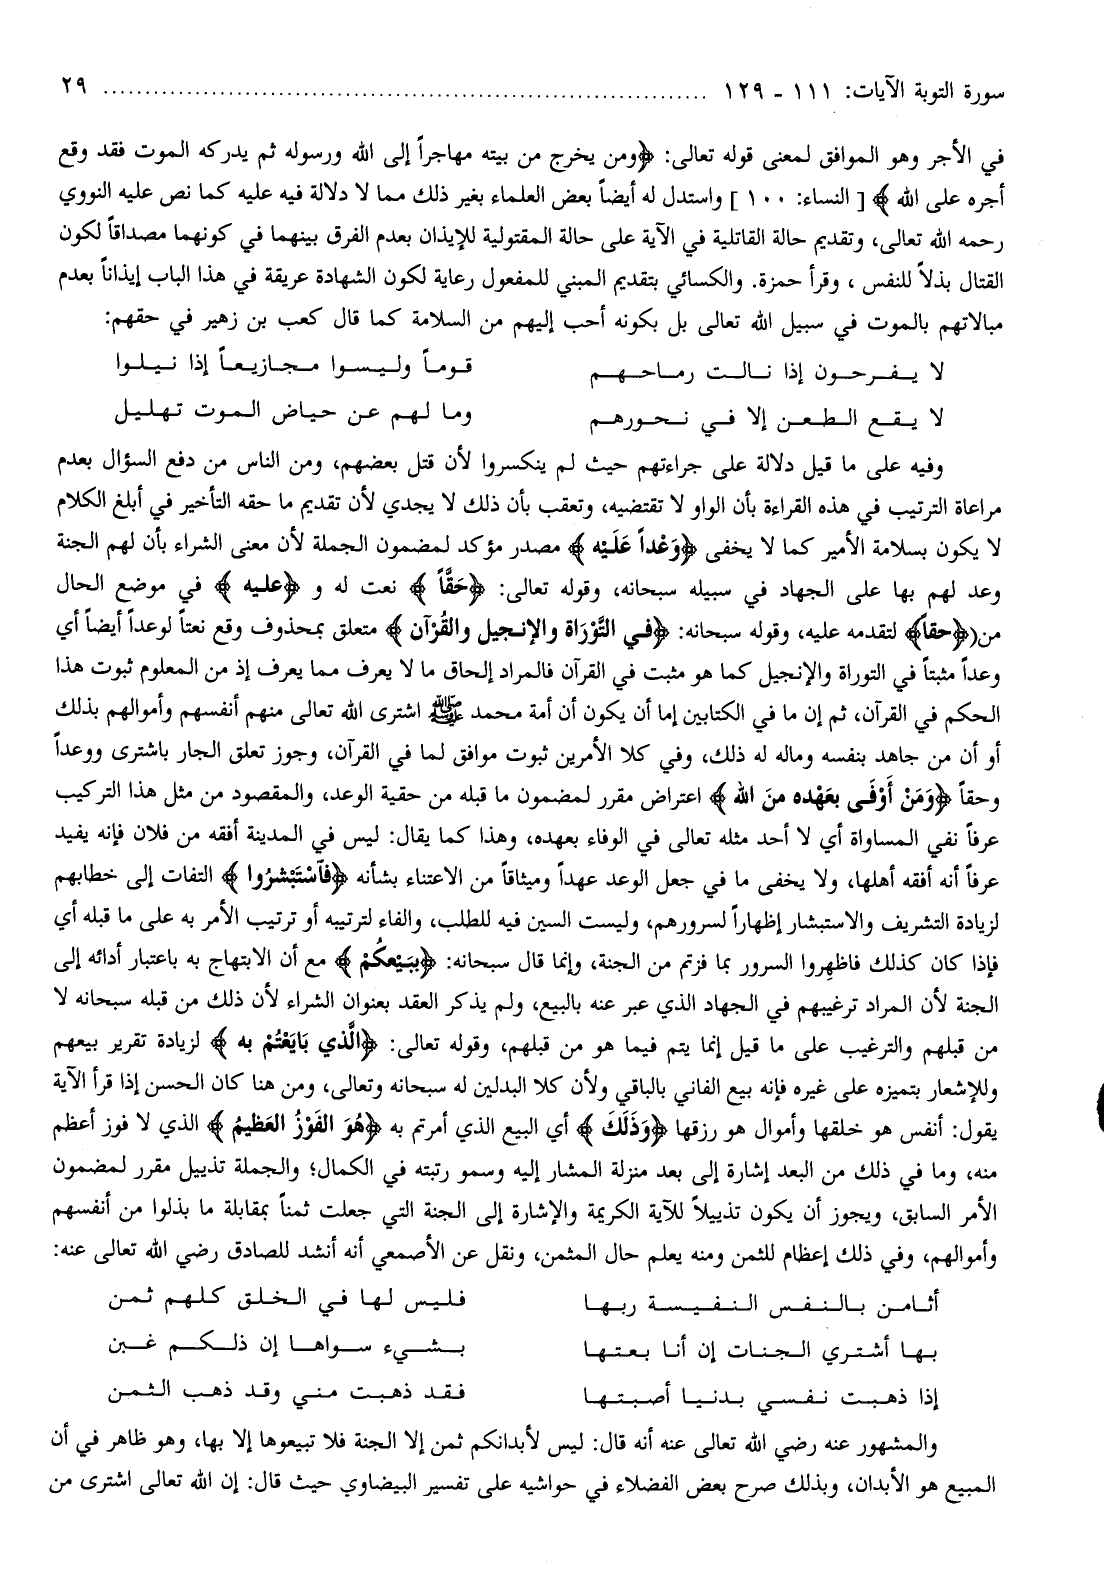 سورة التوبة الآيات: ١١١ ـ ١٢٩ .......................................................................... ٢٩
في الأجر وهو الموافق لمعنى قوله تعالى: ﴿ومن يخرج من بيته مهاجراً إلى الله ورسوله ثم يدركه الموت فقد وقع
أجره على الله ﴾ [ النساء: ١٠٠ ] واستدل له أيضاً بعض العلماء بغير ذلك مما لا دلالة فيه عليه كما نص عليه النووي
رحمه الله تعالى، وتقديم حالة القاتلية في الآية على حالة المقتولية للإيذان بعدم الفرق بينهما في كونهما مصداقاً لكون
القتال بذلاً للنفس ، وقرأ حمزة. والكسائي بتقديم المبني للمفعول رعاية لكون الشهادة عريقة في هذا الباب إيذاناً بعدم
مبالاتهم بالموت في سبيل الله تعالى بل بكونه أحب إليهم من السلامة كما قال كعب بن زهير في حقهم:
لا يـفـرحـون إذا نـالـت رمـاحـهـم قـومـاً ولـيـسـوا مـجـازيـعـاً إذا نـيـلـوا
لا يـقـع الـطـعـن إلا فـي نـحـورهـم ومـا لـهـم عـن حـيـاض الـمـوت تـهـلـيـل
وفيه على ما قيل دلالة على جراءتهم حيث لم ينكسروا لأن قتل بعضهم، ومن الناس من دفع السؤال بعدم
مراعاة الترتيب في هذه القراءة بأن الواو لا تقتضيه، وتعقب بأن ذلك لا يجدي لأن تقديم ما حقه التأخير في أبلغ الكلام
لا يكون بسلامة الأمير كما لا يخفى ﴿وَعْداً عَلَيْه ﴾ مصدر مؤكد لمضمون الجملة لأن معنى الشراء بأن لهم الجنة
وعد لهم بها على الجهاد في سبيله سبحانه، وقوله تعالى: ﴿حَقَّاً ﴾ نعت له و ﴿عليه ﴾ في موضع الحال
من(﴿حقاً﴾ لتقدمه عليه، وقوله سبحانه: ﴿في التَّوْرَاة والإنجيل والقُرْآن ﴾ متعلق بمحذوف وقع نعتاً لوعداً أيضاً أي
وعداً مثبتاً في التوراة والإنجيل كما هو مثبت في القرآن فالمراد إلحاق ما لا يعرف مما يعرف إذ من المعلوم ثبوت هذا
الحكم في القرآن، ثم إن ما في الكتابين إما أن يكون أن أمة محمد ﷺ اشترى الله تعالى منهم أنفسهم وأموالهم بذلك
أو أن من جاهد بنفسه وماله له ذلك، وفي كلا الأمرين ثبوت موافق لما في القرآن، وجوز تعلق الجار باشترى ووعداً
وحقاً ﴿وَمَنْ أَوْفَى بعَهْده منَ الله ﴾ اعتراض مقرر لمضمون ما قبله من حقية الوعد، والمقصود من مثل هذا التركيب
عرفاً نفي المساواة أي لا أحد مثله تعالى في الوفاء بعهده، وهذا كما يقال: ليس في المدينة أفقه من فلان فإنه يفيد
عرفاً أنه أفقه أهلها، ولا يخفى ما في جعل الوعد عهداً وميثاقاً من الاعتناء بشأنه ﴿فَآسْتَبْشرُوا ﴾ التفات إلى خطابهم
لزيادة التشريف والاستبشار إظهاراً لسرورهم، وليست السين فيه للطلب، والفاء لترتيبه أو ترتيب الأمر به على ما قبله أي
فإذا كان كذلك فاظهِروا السرور بما فزتم من الجنة، وإنما قال سبحانه: ﴿ببَيْعكُمْ ﴾ مع أن الابتهاج به باعتبار أدائه إلى
الجنة لأن المراد ترغيبهم في الجهاد الذي عبر عنه بالبيع، ولم يذكر العقد بعنوان الشراء لأن ذلك من قبله سبحانه لا
من قبلهم والترغيب على ما قيل إنما يتم فيما هو من قبلهم، وقوله تعالى: ﴿الَّذي بَايَعْتُمْ به ﴾ لزيادة تقرير بيعهم
وللإشعار بتميزه على غيره فإنه بيع الفاني بالباقي ولأن كلا البدلين له سبحانه وتعالى، ومن هنا كان الحسن إذا قرأ الآية
يقول: أنفس هو خلقها وأموال هو رزقها ﴿وَذَلَكَ ﴾ أي البيع الذي أمرتم به ﴿هُوَ الفَوْزُ العَظيمُ ﴾ الذي لا فوز أعظم
منه، وما في ذلك من البعد إشارة إلى بعد منزلة المشار إليه وسمو رتبته في الكمال؛ والجملة تذييل مقرر لمضمون
الأمر السابق، ويجوز أن يكون تذييلاً للآية الكريمة والإشارة إلى الجنة التي جعلت ثمناً بمقابلة ما بذلوا من أنفسهم
وأموالهم، وفي ذلك إعظام للثمن ومنه يعلم حال المثمن، ونقل عن الأصمعي أنه أنشد للصادق رضي الله تعالى عنه:
أثـامـن بـالـنـفـس الـنـفـيـسـة ربـهـا فـلـيـس لـهـا فـي الـخـلـق كـلـهـم ثـمـن
بـهـا أشـتـري الـجـنـات إن أنـا بـعـتـهـا بـشـيء سـواهـا إن ذلـكـم غـبـن
إذا ذهـبـت نـفـسـي بـدنـيـا أصـبـتـهـا فـقـد ذهـبـت مـنـي وقـد ذهـب الـثـمـن
والمشهور عنه رضي الله تعالى عنه أنه قال: ليس لأبدانكم ثمن إلا الجنة فلا تبيعوها إلا بها، وهو ظاهر في أن
المبيع هو الأبدان، وبذلك صرح بعض الفضلاء في حواشيه على تفسير البيضاوي حيث قال: إن الله تعالى اشترى من